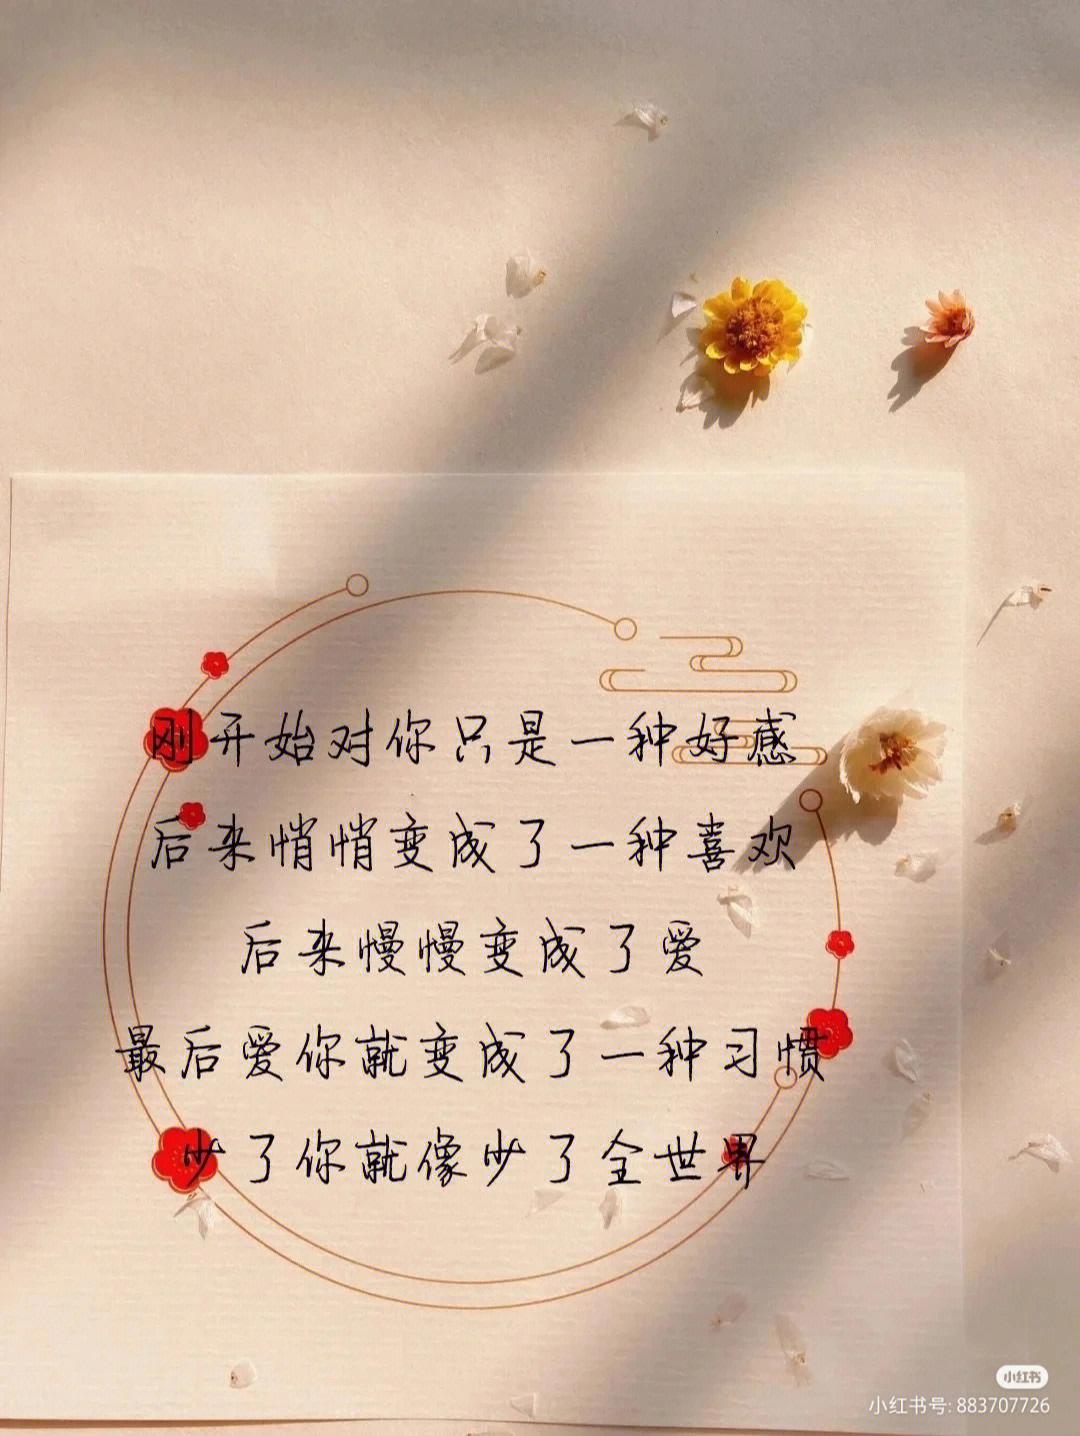 刚开始对你只是一种好感
后来悄悄变成了一种喜欢
后来慢慢变成了爱
最后爱你就变成了一种习惯
少了你就像少了全世界
小红书
小红书号: 883707726